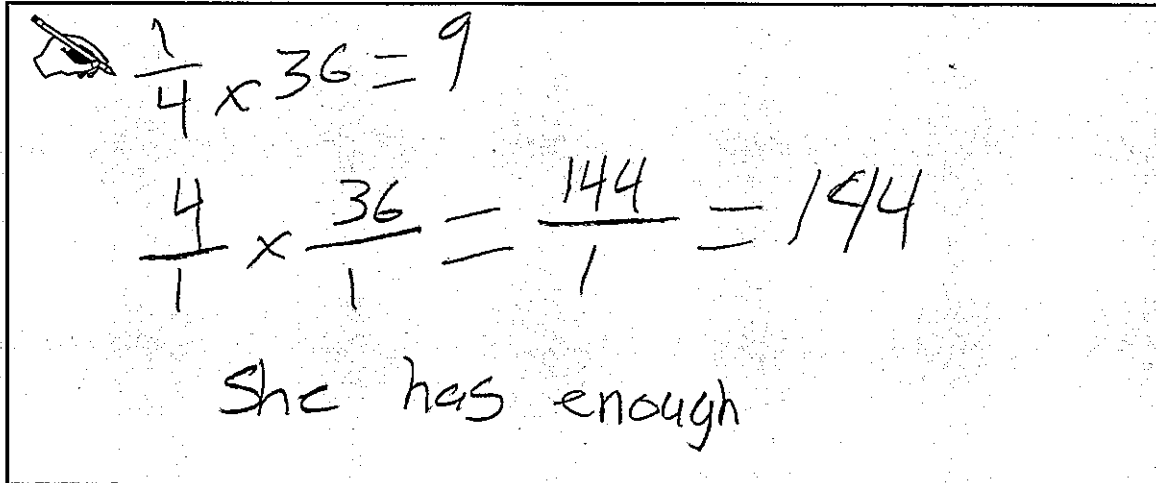 1/4 x 36 = 9
4/1 x 36/1 = 144/1 = 144
She has enough